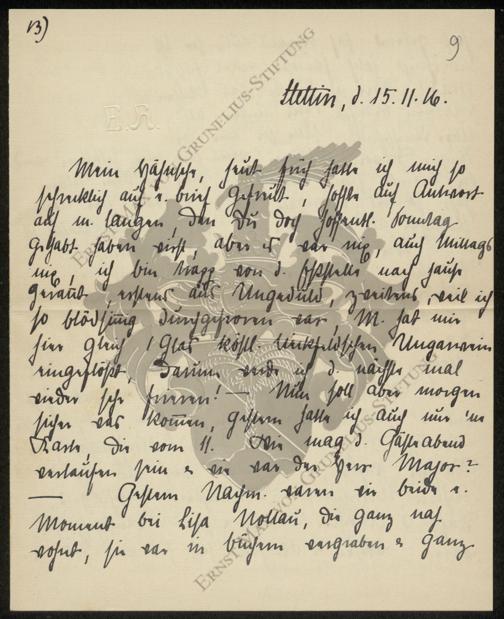 13)
9
E.R.
Stettin, d. 15.11.16.
Mein Hähnsche, heut früh hatte ich mich so
schrecklich auf e. brief gefreut, hoffte auf Antwort
auf m. langen, den Du doch hoffentl. Sonntag
gehabt haben wirst, aber es war nix, auch Mittags
nix, ich bin knapp von d. Eßstelle nach hause
gerannt, erstens aus Ungeduld, zweitens, weil ich
so blödsinnig durchgefroren war. M. hat mir
hier gleich 1 Glas köstl. Ungarwein
eingeflößt, darum werde ich d. nächste mal
wieder sehr frieren! — Nun soll aber morgen
sicher was kommen, gestern hatte ich auch nur 'ne
Karte, die vom 11. Wie mag d. Gästeabend
verlaufen sein & wie war der Herr Major?
— Gestern Nachm. waren wir beide e.
Moment bei Lisa Nollau, die ganz nah
wohnt, sie war in büchern vergraben & ganz
ERNST MAX VON GRUNELIUS-STIFTUNG
ERNST MAX VON GRUNELIUS-STIFTUNG